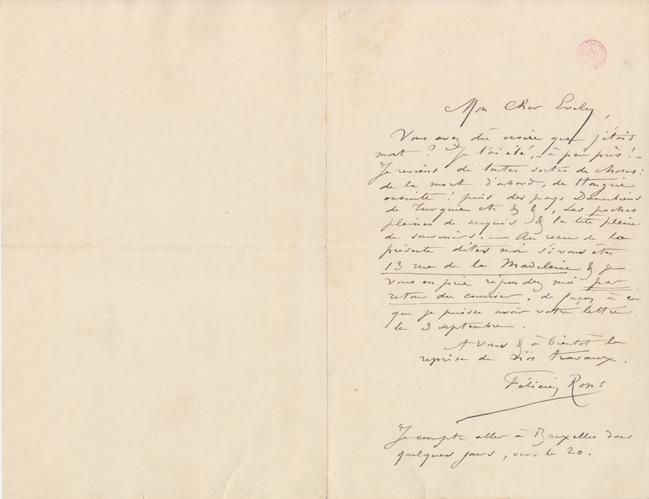 Mon Cher Evely,
Vous avez dû croire que j'étais
mort ? Je l'ai été, – à peu près ! –
Je reviens de toutes sortes de choses :
de la mort d'abord, de Hongrie
ensuite ! puis des pays Danubiens
de Turquie etc & &, les poches
pleines de croquis & la tête pleine
de souvenirs. – Au reçu de la
présente dites moi si vous êtes
13 rue de la Madeleine & je
vous en prie répondez moi par
retour du courrier, de façon à ce
que je puisse avoir votre lettre
le 3 septembre.
A vous & à bientôt la
reprise de nos travaux.
Félicien Rops
Je compte aller à Bruxelles dans
quelques jours, vers le 20.